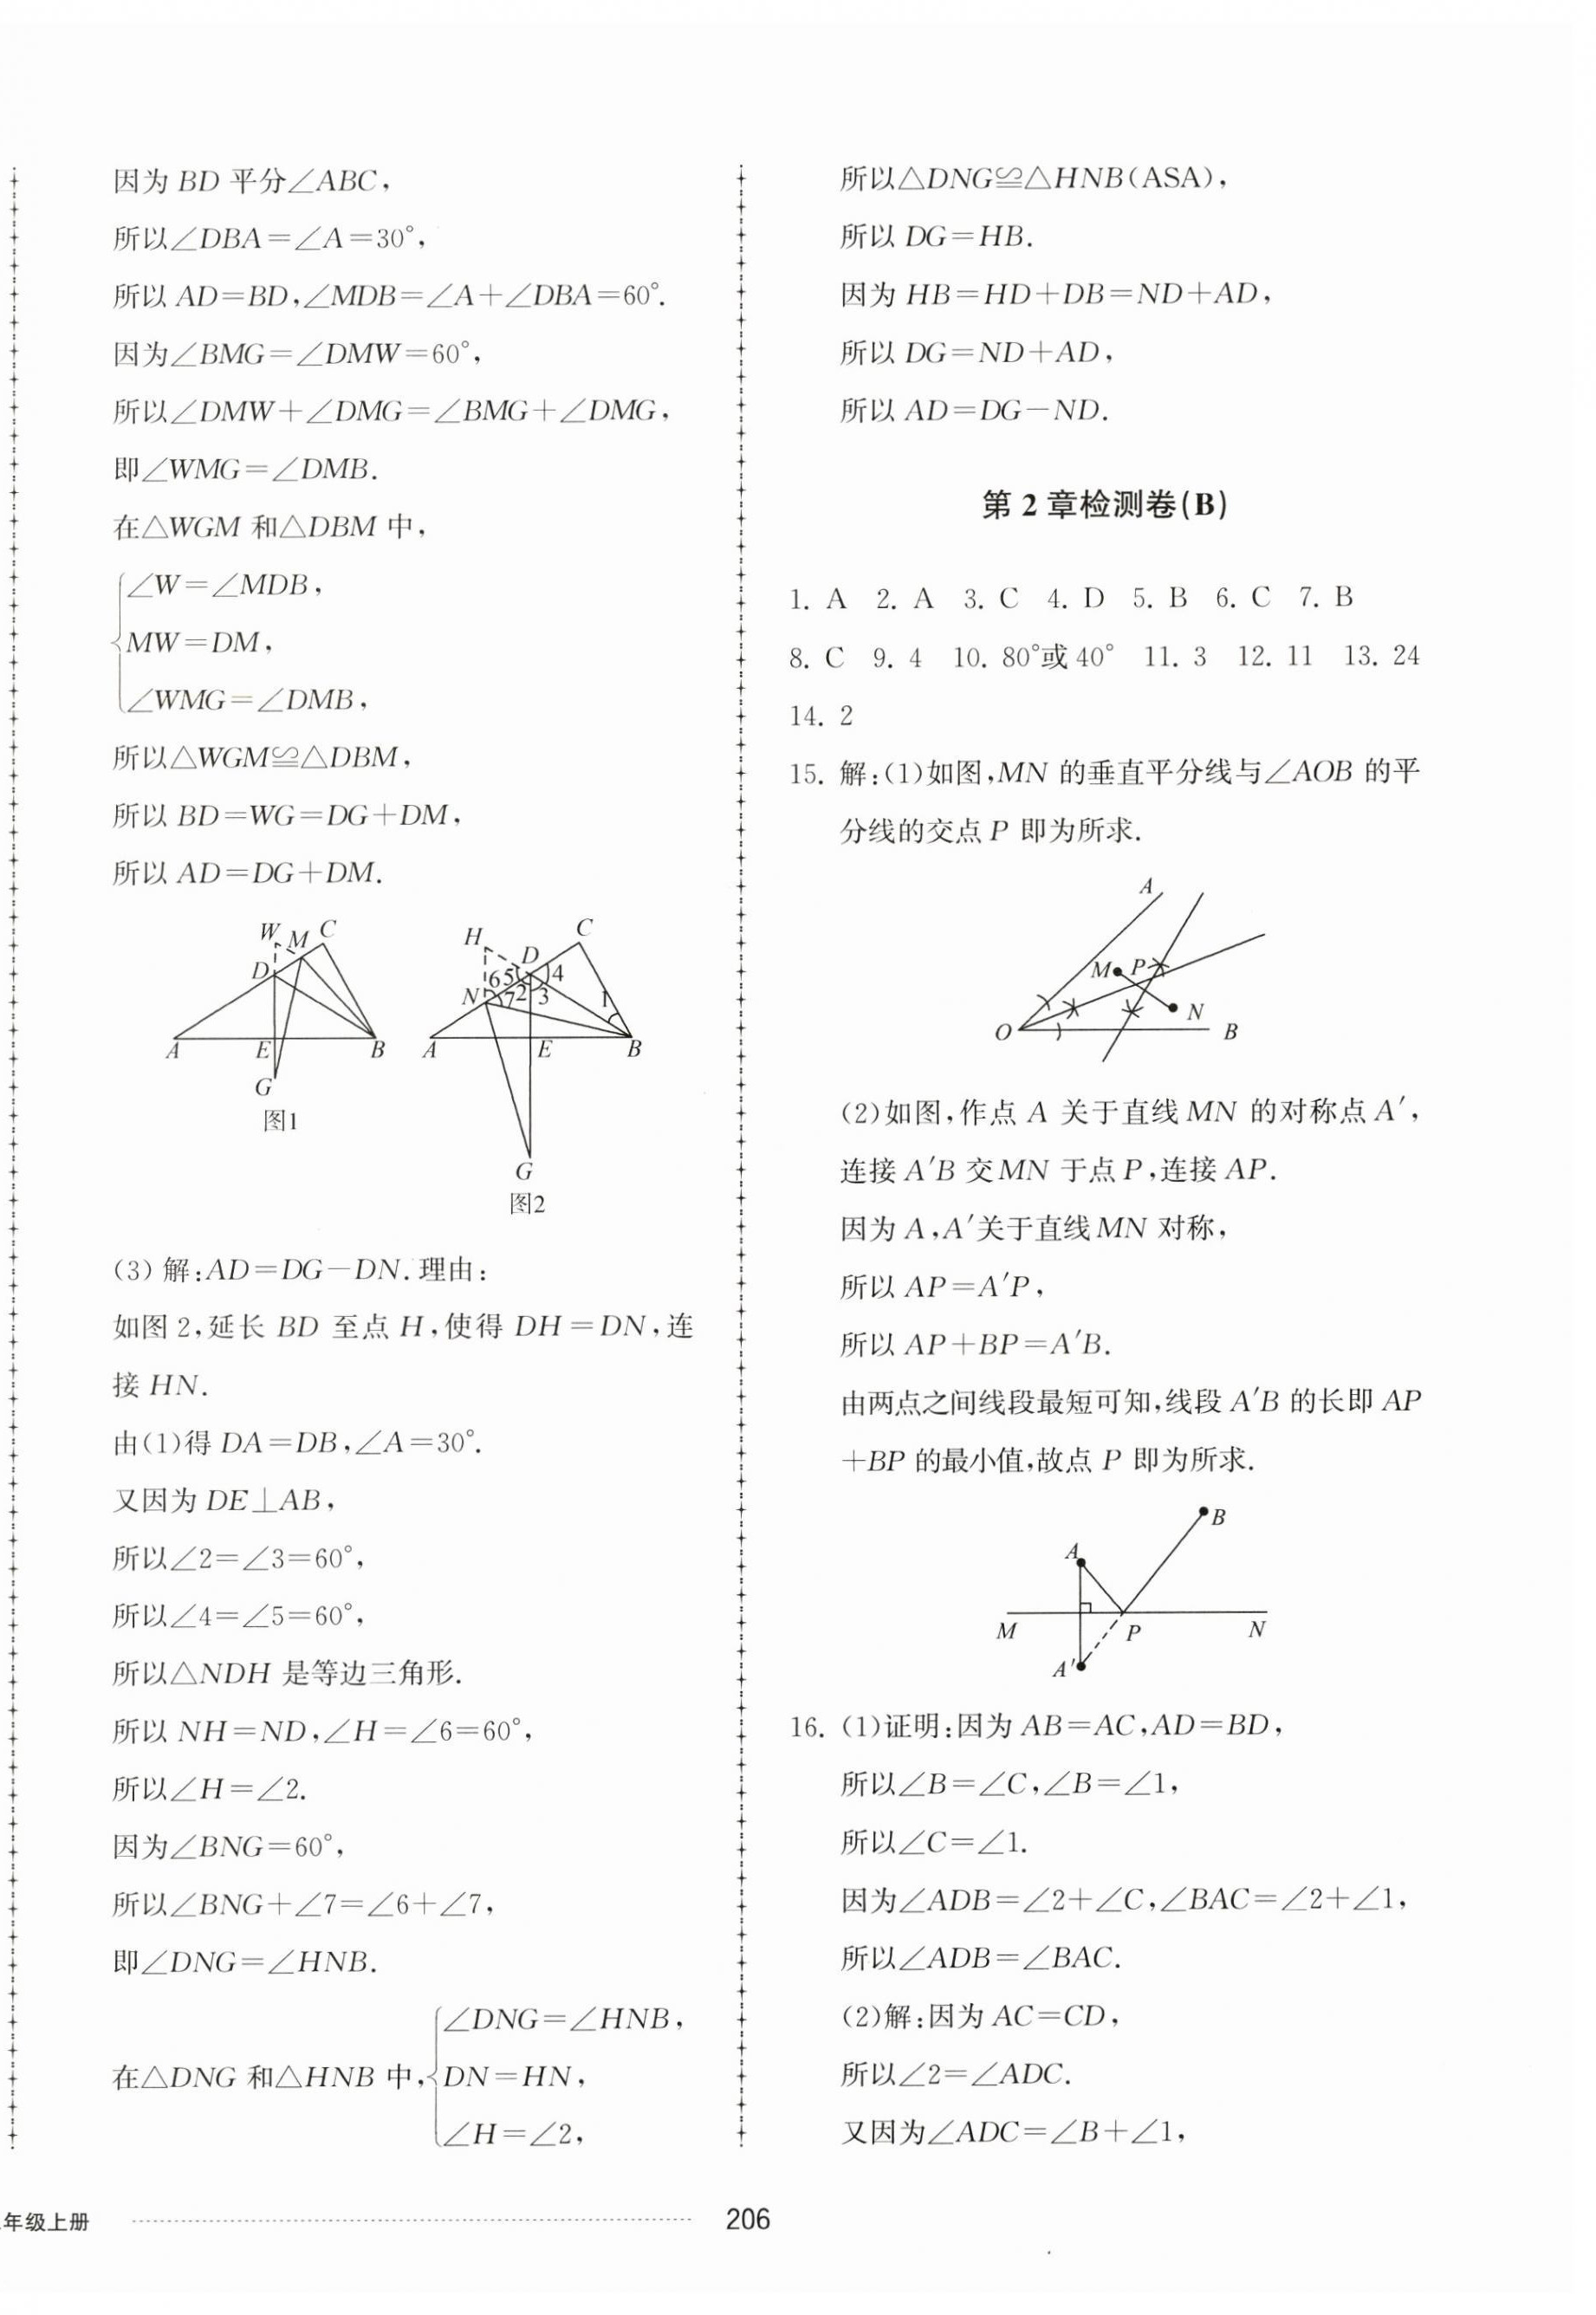 因为 BD 平分∠ABC，
所以∠DBA＝∠A＝30°，
所以 AD＝BD，∠MDB＝∠A＋∠DBA＝60°.
因为∠BMG＝∠DMW＝60°，
所以∠DMW＋∠DMG＝∠BMG＋∠DMG，
即∠WMG＝∠DMB.
在△WGM 和△DBM 中，
∠W＝∠MDB，
MW＝DM，
∠WMG＝∠DMB，
所以△WGM≌△DBM，
所以 BD＝WG＝DG＋DM，
所以 AD＝DG＋DM.
W M C
D
A E B
G
图1
H D C
6 5 4
N 7 2 3 1
A E B
G
图2
(3) 解：AD＝DG－DN. 理由：
如图 2，延长 BD 至点 H，使得 DH＝DN，连
接 HN.
由(1)得 DA＝DB，∠A＝30°.
又因为 DE⊥AB，
所以∠2＝∠3＝60°，
所以∠4＝∠5＝60°，
所以△NDH 是等边三角形.
所以 NH＝ND，∠H＝∠6＝60°，
所以∠H＝∠2.
因为∠BNG＝60°，
所以∠BNG＋∠7＝∠6＋∠7，
即∠DNG＝∠HNB.
∠DNG＝∠HNB，
在△DNG 和△HNB 中，DN＝HN，
∠H＝∠2，
所以△DNG≌△HNB(ASA)，
所以 DG＝HB.
因为 HB＝HD＋DB＝ND＋AD，
所以 DG＝ND＋AD，
所以 AD＝DG－ND.
第 2 章检测卷(B)
1. A 2. A 3. C 4. D 5. B 6. C 7. B
8. C 9. 4 10. 80°或 40° 11. 3 12. 11 13. 24
14. 2
15. 解：(1)如图，MN 的垂直平分线与∠AOB 的平
分线的交点 P 即为所求.
A
M P
N
O B
(2)如图，作点 A 关于直线 MN 的对称点 A′，
连接 A′B 交 MN 于点 P，连接 AP.
因为 A，A′关于直线 MN 对称，
所以 AP＝A′P，
所以 AP＋BP＝A′B.
由两点之间线段最短可知，线段 A′B 的长即 AP
＋BP 的最小值，故点 P 即为所求.
B
A
M P N
A′
16. (1)证明：因为 AB＝AC，AD＝BD，
所以∠B＝∠C，∠B＝∠1，
所以∠C＝∠1.
因为∠ADB＝∠2＋∠C，∠BAC＝∠2＋∠1，
所以∠ADB＝∠BAC.
(2)解：因为 AC＝CD，
所以∠2＝∠ADC.
又因为∠ADC＝∠B＋∠1，
年级上册
206